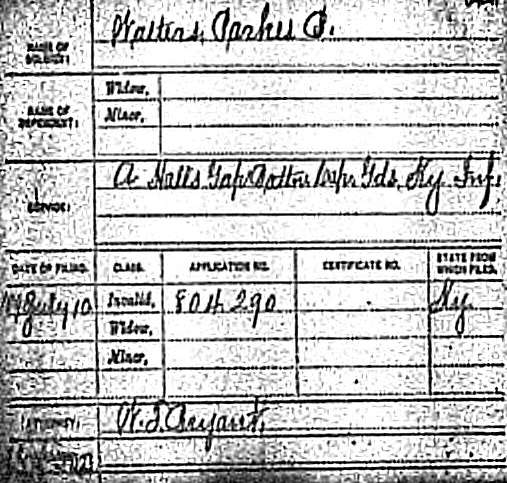 NAME OF SOLDIER: Walters, Parker D.
NAME OF DEPENDENT: Widow,
Minor,
SERVICE: A Halls Gap Battn Ky. Inf.
DATE OF FILING. CLASS. APPLICATION NO. CERTIFICATE NO. STATE FROM WHICH FILED.
July 10 Invalid, 804290 Ky.
Widow,
Minor,
ATTORNEY: W. T. Bryant.